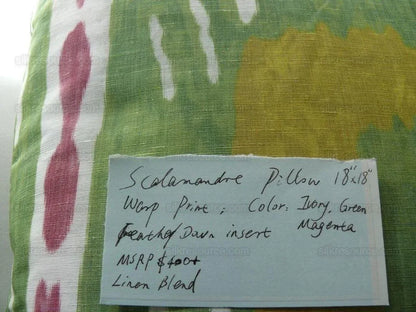 Scalamandre Pillow 18"x18"
Warp Print; Color: Ivory, Green
Magenta
Feather/Down insert
MSRP $400+
Linen Blend